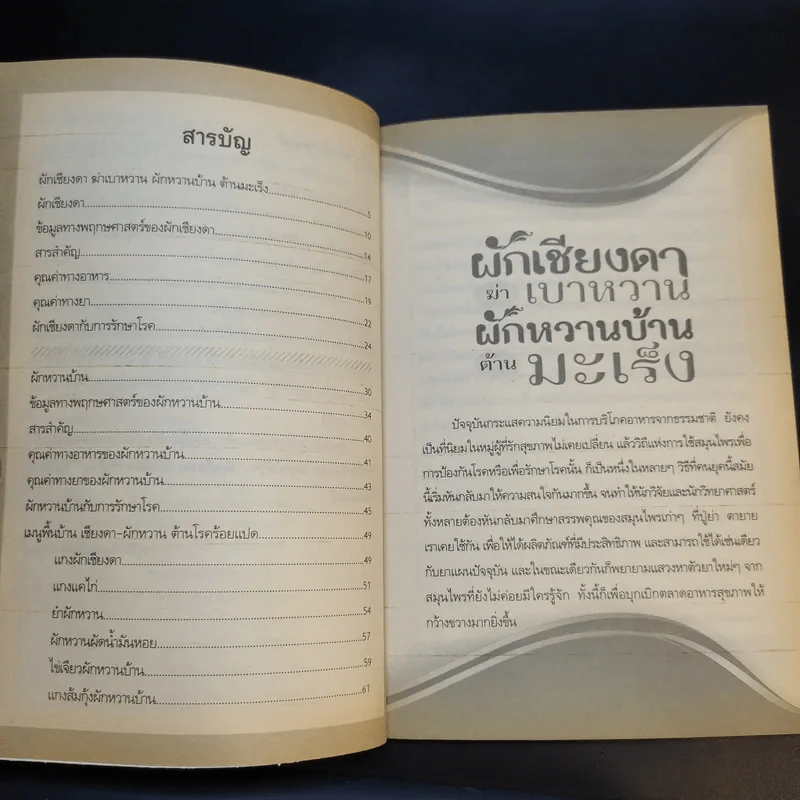 สารบัญ
ผักเชียงดา ฆ่าเบาหวาน ผักหวานบ้าน ต้านมะเร็ง.....5
ผักเชียงดา.....10
ข้อมูลทางพฤกษศาสตร์ของผักเชียงดา.....14
สารสำคัญ.....17
คุณค่าทางอาหาร.....19
คุณค่าทางยา.....22
ผักเชียงดากับการรักษาโรค.....24
ผักหวานบ้าน.....30
ข้อมูลทางพฤกษศาสตร์ของผักหวานบ้าน.....34
สารสำคัญ.....40
คุณค่าทางอาหารของผักหวานบ้าน.....41
คุณค่าทางยาของผักหวานบ้าน.....43
ผักหวานบ้านกับการรักษาโรค.....45
เมนูพื้นบ้าน เชียงดา-ผักหวาน ต้านโรคร้อยแปด.....49
แกงผักเชียงดา.....49
แกงแคไก่.....51
ยำผักหวาน.....54
ผักหวานผัดน้ำมันหอย.....57
ไข่เจียวผักหวานบ้าน.....59
แกงส้มกุ้งผักหวานบ้าน.....61
ผักเชียงดา
ฆ่า เบาหวาน
ผักหวานบ้าน
ต้าน มะเร็ง
ปัจจุบันกระแสความนิยมในการบริโภคอาหารจากธรรมชาติ ยังคง
เป็นที่นิยมในหมู่ผู้ที่รักสุขภาพไม่เคยเปลี่ยน แล้ววิถีแห่งการใช้สมุนไพรเพื่อ
การป้องกันโรคหรือเพื่อรักษาโรคนั้น ก็เป็นหนึ่งในหลายๆ วิธีที่คนยุคนี้สมัย
นี้เริ่มหันกลับมาให้ความสนใจกันมากขึ้น จนทำให้นักวิจัยและนักวิทยาศาสตร์
ทั้งหลายต้องหันกลับมาศึกษาสรรพคุณของสมุนไพรเก่าๆ ที่ปู่ย่า ตายาย
เราเคยใช้กัน เพื่อให้ได้ผลิตภัณฑ์ที่มีประสิทธิภาพ และสามารถใช้ได้เช่นเดียว
กับยาแผนปัจจุบัน และในขณะเดียวกันก็พยายามแสวงหาตัวยาใหม่ๆ จาก
สมุนไพรที่ยังไม่ค่อยมีใครรู้จัก ทั้งนี้ก็เพื่อบุกเบิกตลาดอาหารสุขภาพให้
กว้างขวางมากยิ่งขึ้น